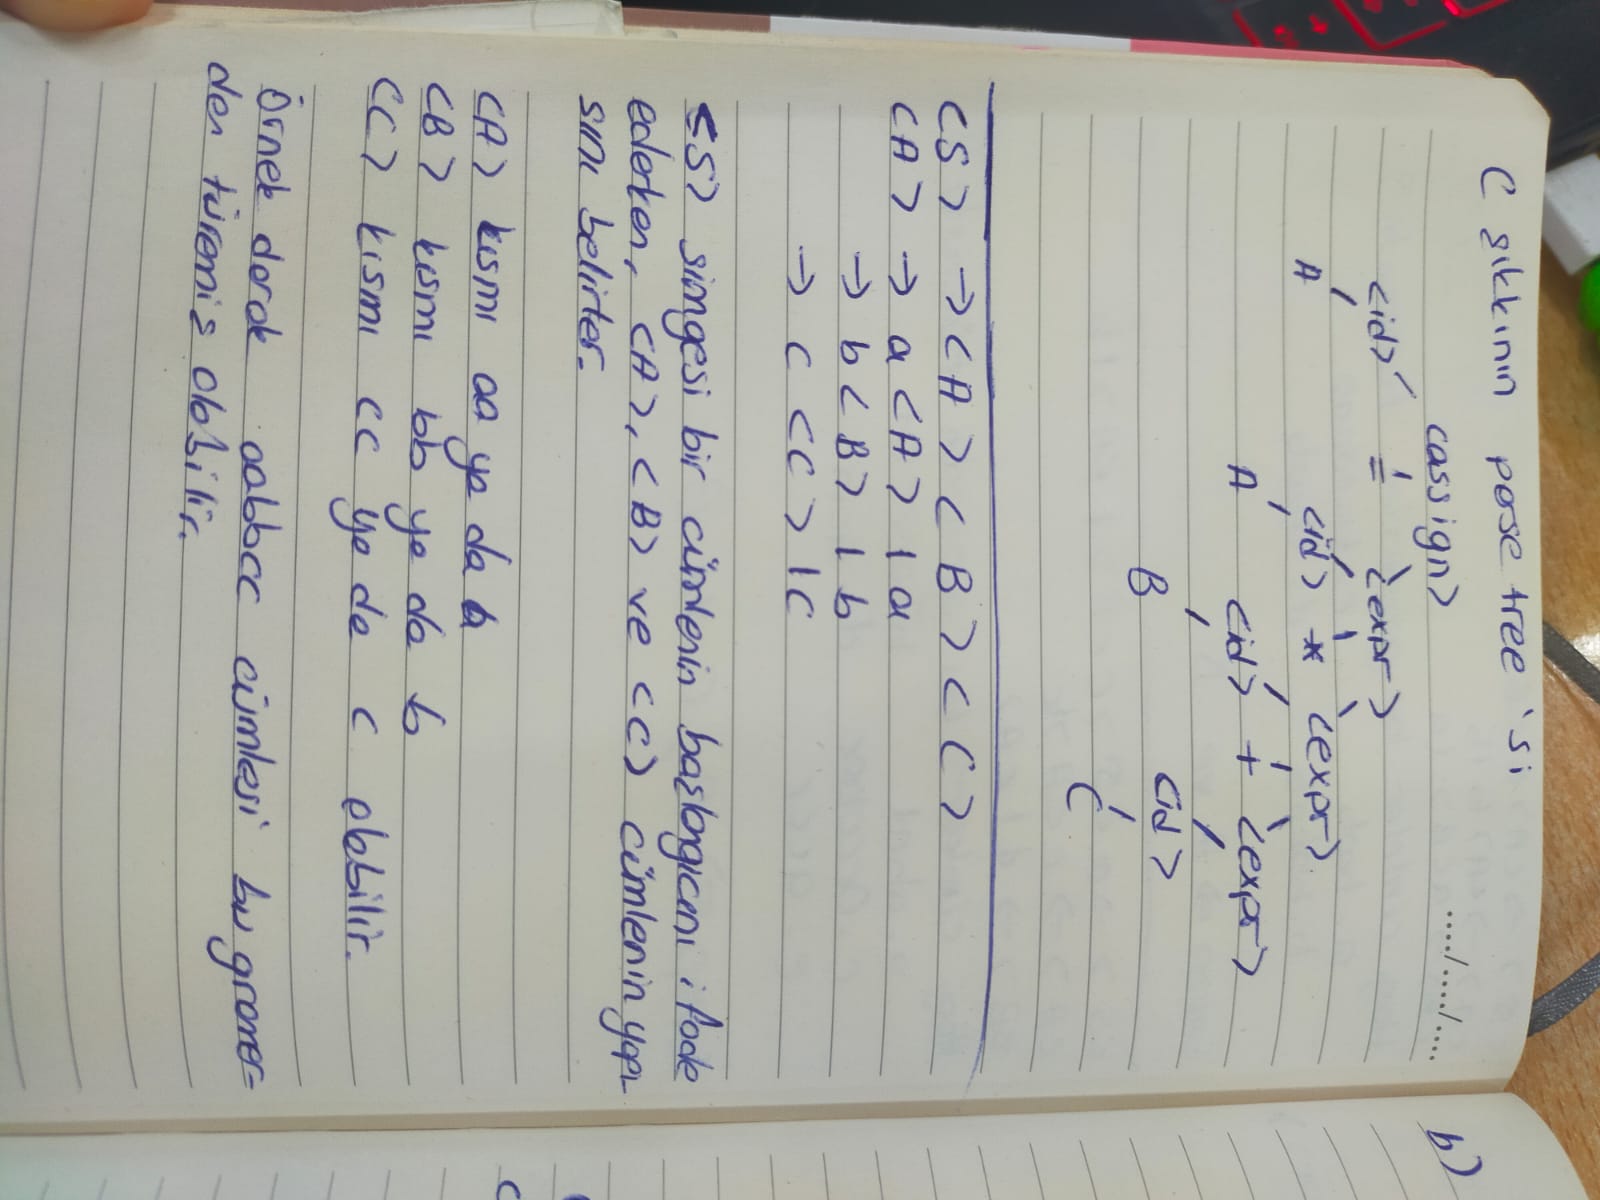 ...../...../.....
C şıkkının parse tree 'si
<assign>
<id> = <expr>
A <id> * <expr>
A <id> + <expr>
B <id>
C
<S> → <A> <B> <C>
<A> → a <A> | a
→ b <B> | b
→ c <C> | c
<S> simgesi bir cümlenin başlangıcını ifade
ederken, <A>, <B> ve <C> cümlenin yapı-
sını belirler.
<A> kısmı aa ya da a
<B> kısmı bb ya da b
<C> kısmı cc ya da c olabilir.
Örnek olarak aabbcc cümlesi bu gramer-
den türemiş olabilir.
b)